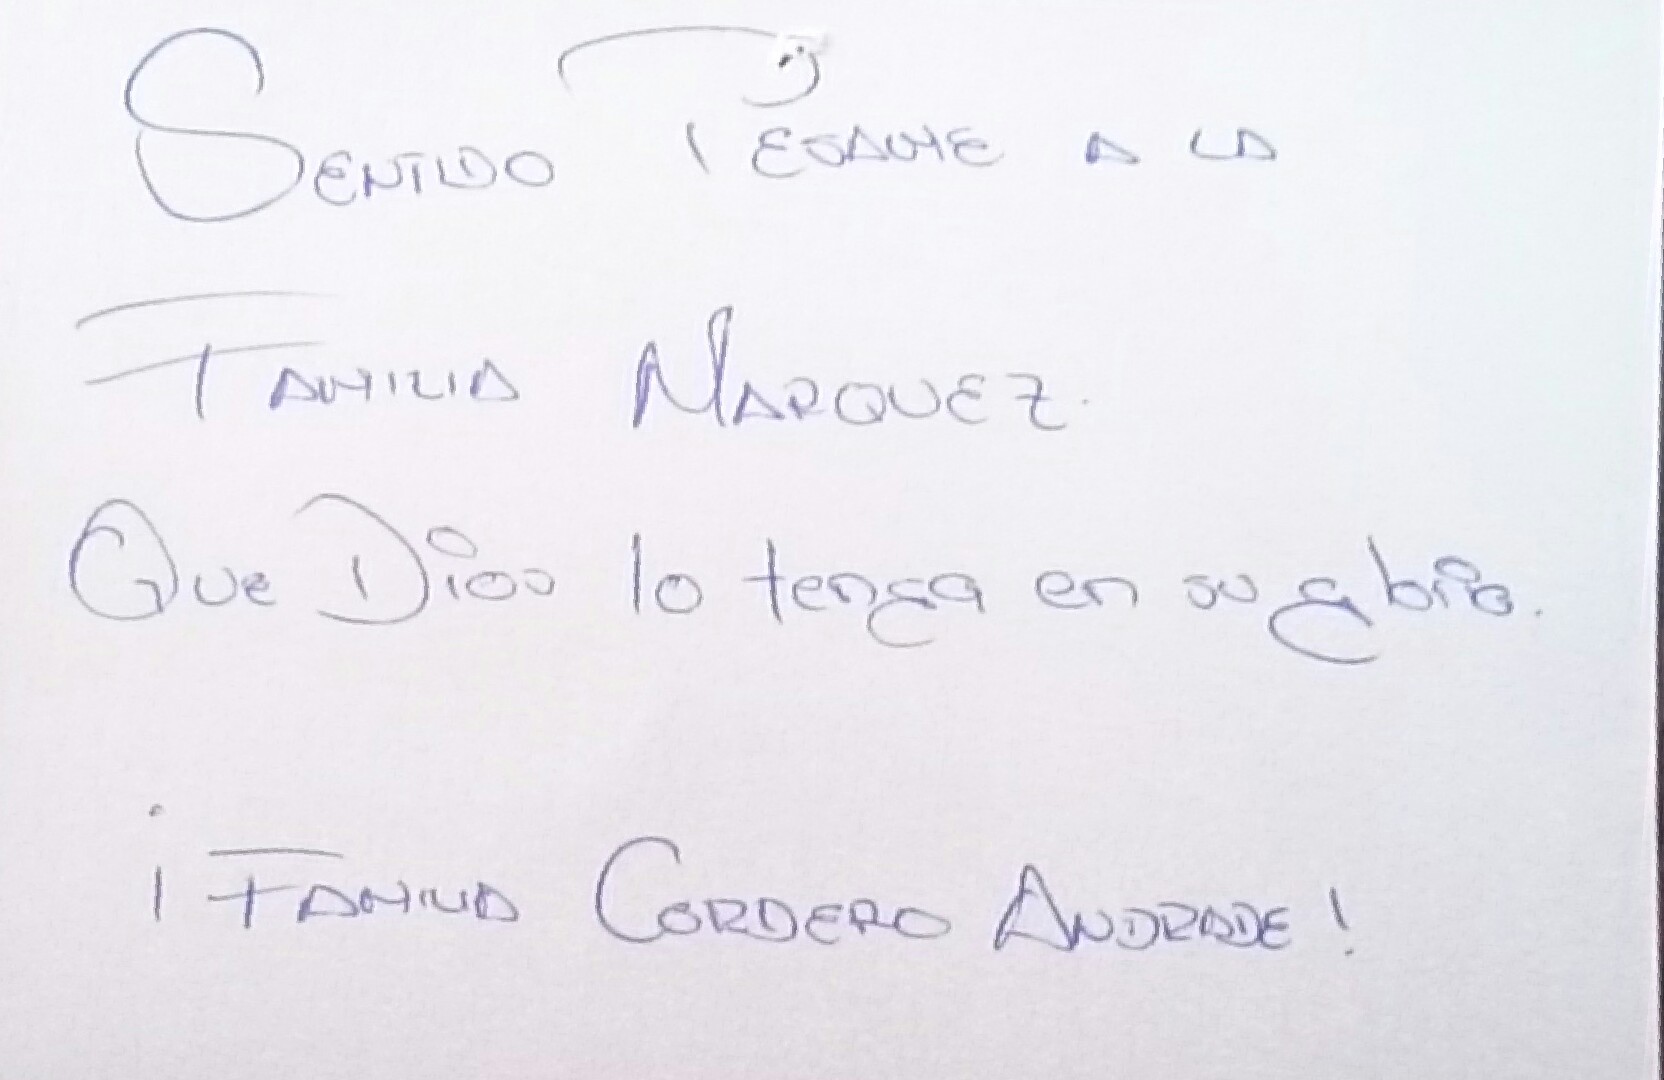 SENTIDO PESAME A LA
FAMILIA MARQUEZ.
Que Dios lo tenga en su gloria.
¡ FAMILIA CORDERO ANDRADE !